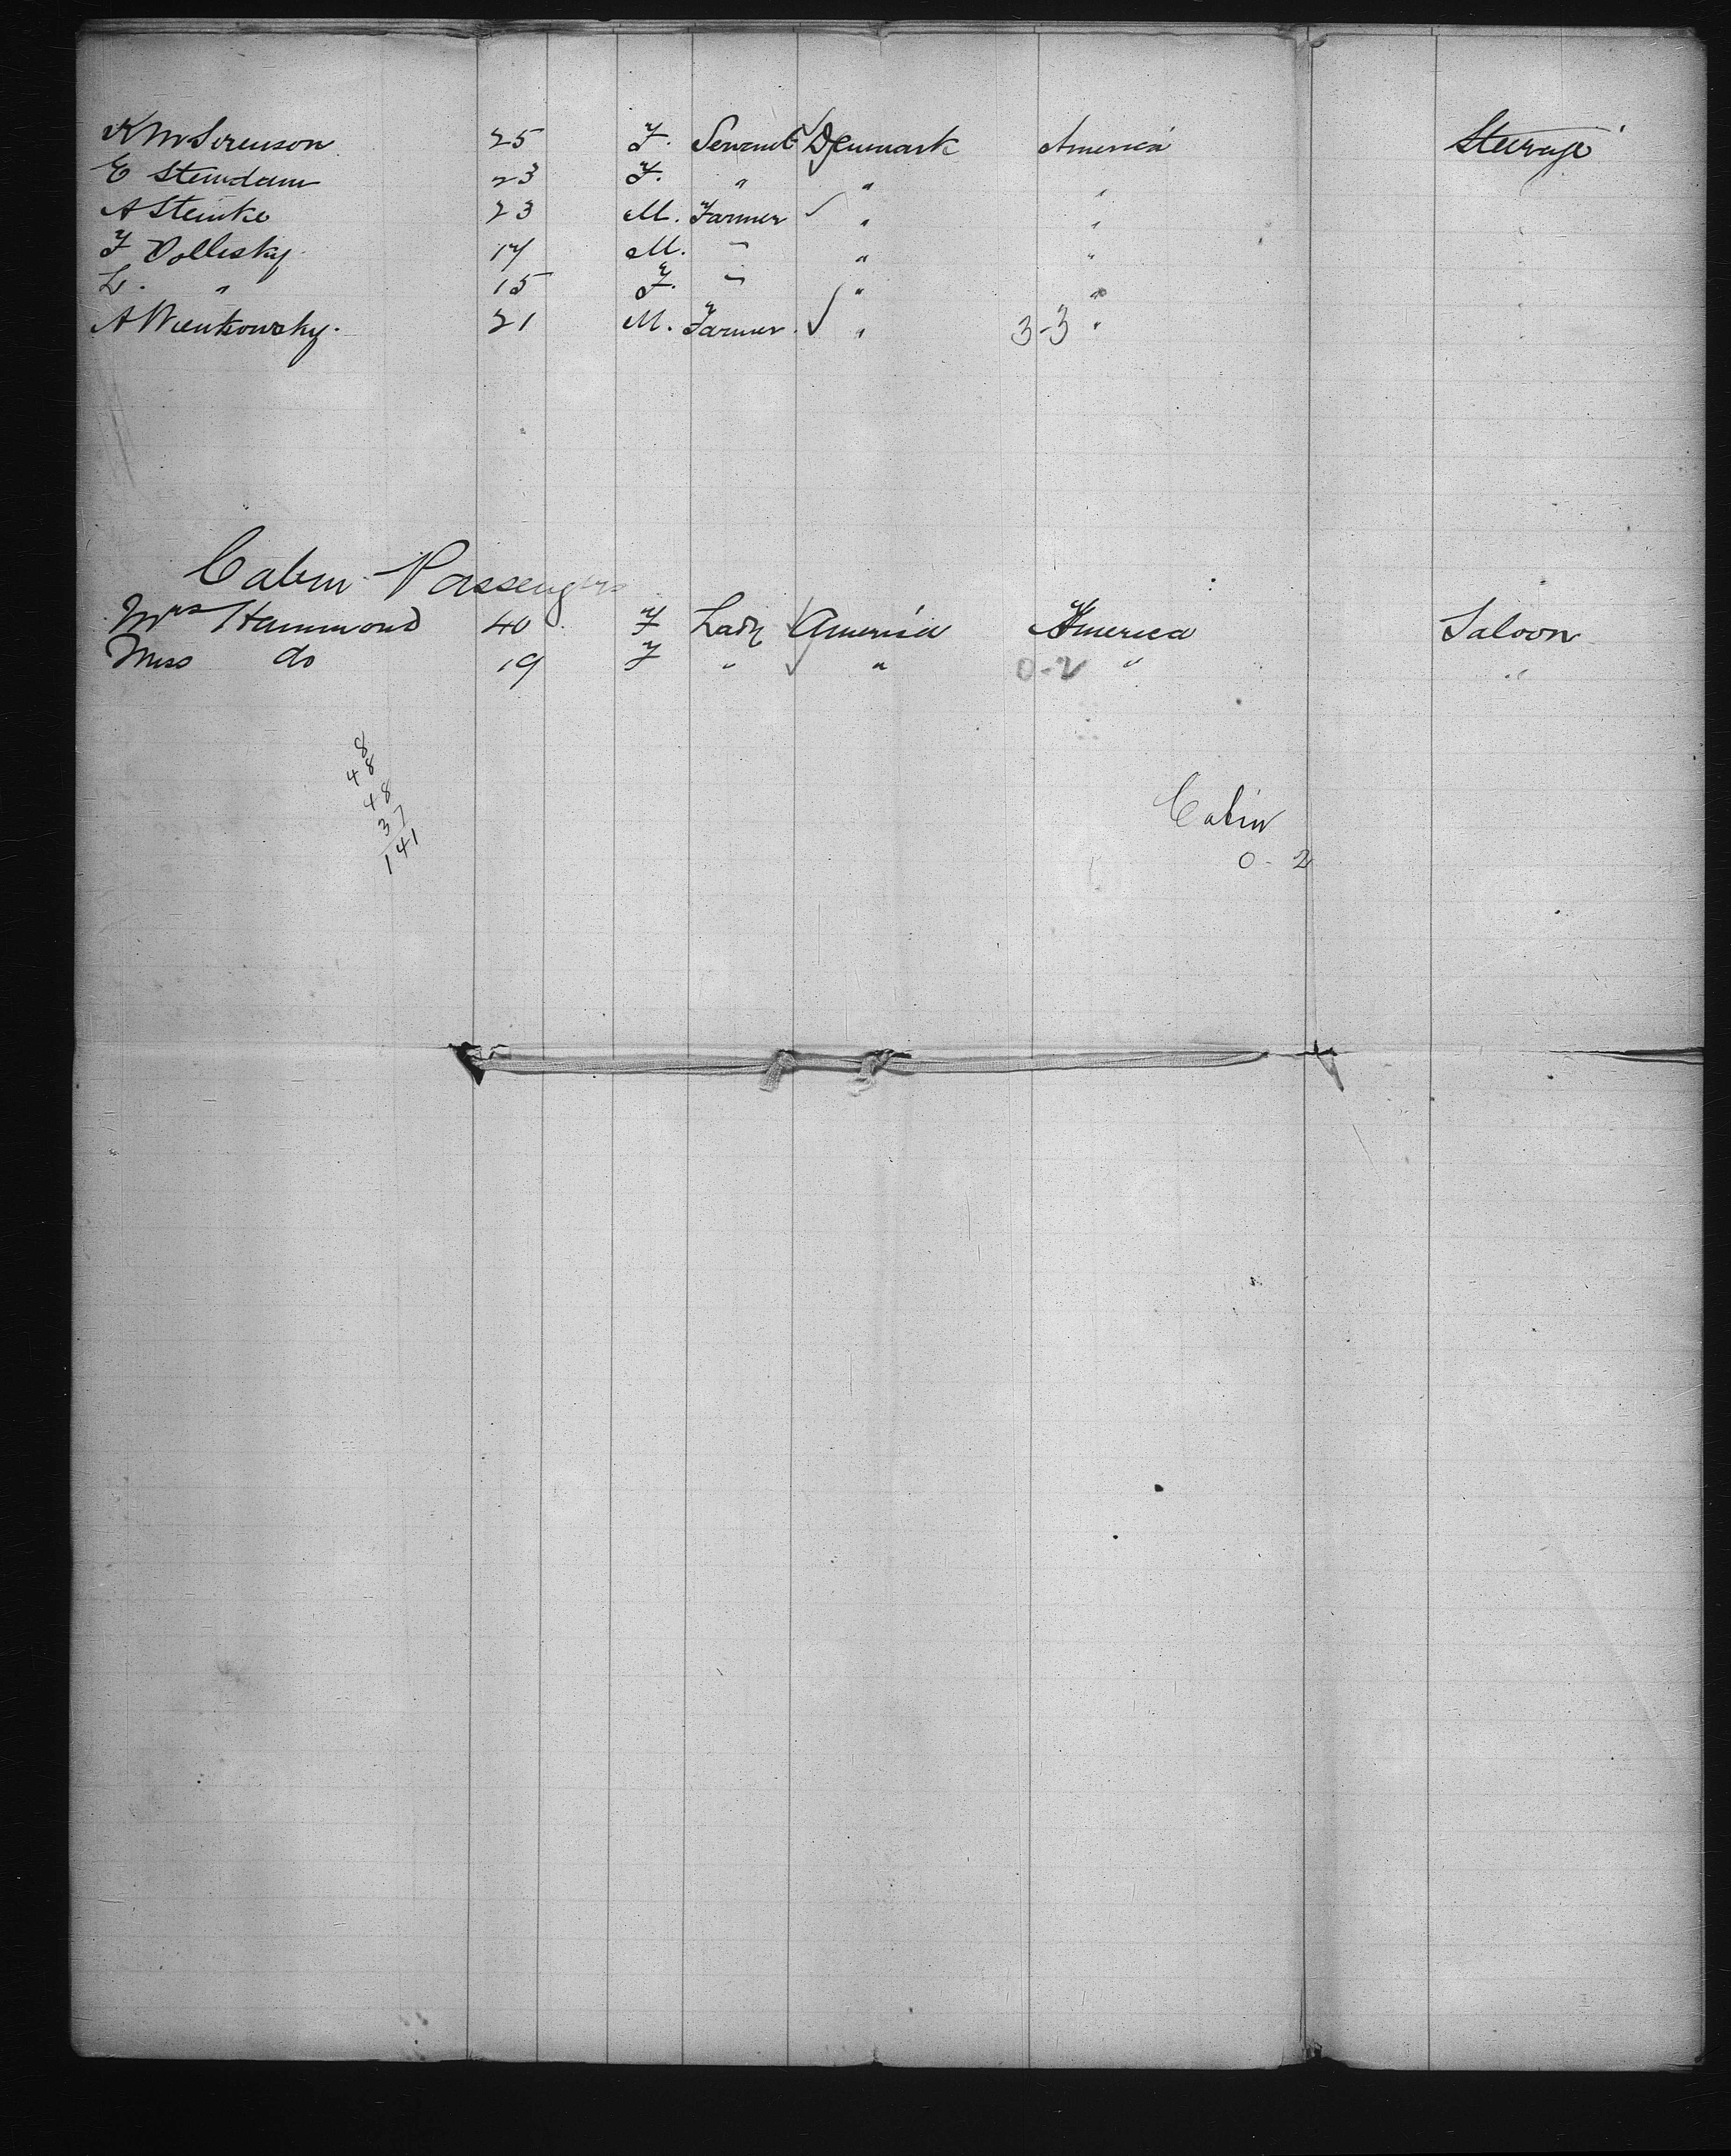 K M Sorenson 25 F. Servant Denmark America Steerage
E Steindam 23 F. " " "
A Steinke 23 M. Farmer " "
F Dollesky 17 M. " " "
L. " 15 F. " " "
A Wienkowsky. 21 M. Farmer. " 3-3 "
Cabin Passengers
Mrs Hammond 40 F Lady America America Saloon
Miss do 19 F " " 0-2 " "
8
48
48
37
141
Cabin
0-2